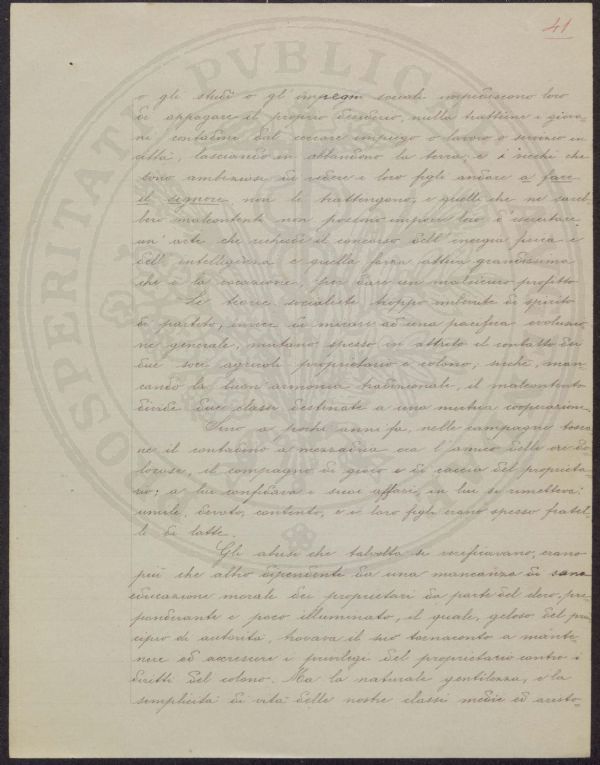 41
PROSPERITATI PVBLICAE
o gli studi o gli impegni sociali impediscono loro
di appagare il proprio desiderio, nulla trattiene i giova-
ni contadini dal cercare impiego o lavoro o servizio in
città, lasciando in abbandono la terra; e i vecchi che
sono ambiziosi di vedere i loro figli andare a fare
il signore non li trattengono, e quelli che ne sareb-
bero malcontenti non possono imporre loro d'esercitare
un'arte che richiede il concorso dell'energia fisica e
dell'intelligenza e quella forza attiva grandissima
che è la vocazione, per dare un malsicuro profitto.
Le teorie socialiste, troppo imbevute di spirito
di partito, invece di mirare ad una pacifica evoluzio-
ne generale, mutano spesso in attrito il contatto dei
due soci agricoli proprietario e colono; sicché, man-
cando la buon'armonia tradizionale, il malcontento
divide due classi destinate a una mutua cooperazione.
Sino a pochi anni fa, nelle campagne tosca-
ne il contadino a mezzadria era l'amico delle ore do-
lorose, il compagno di gioco e di caccia del proprieta-
rio; a lui confidava i suoi affari, in lui si rimetteva:
umile, devoto, contento, e i loro figli erano spesso fratel-
li di latte.
Gli abusi che talvolta si verificavano, erano
più che altro dipendente da una mancanza di sana
educazione morale dei proprietari da parte del clero, pre-
ponderante e poco illuminato, il quale, geloso del prin-
cipio di autorità, trovava il suo tornaconto a mante-
nere ed accrescere i privilegi del proprietario contro i
diritti del colono. Ma la naturale gentilezza, e la
semplicità di vita delle nostre classi medie ed aristo-